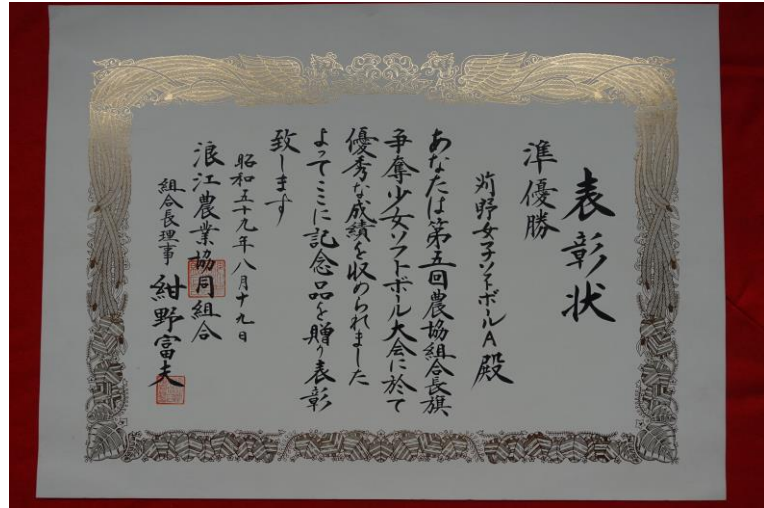 表彰状
準優勝
苅野女子ソフトボールA殿
あなたは第五回農協組合長旗
争奪少女ソフトボール大会に於て
優秀な成績を収められました
よってここに記念品を贈り表彰
致します
昭和五十九年八月十九日
浪江農業協同組合
組合長理事 紺野富夫